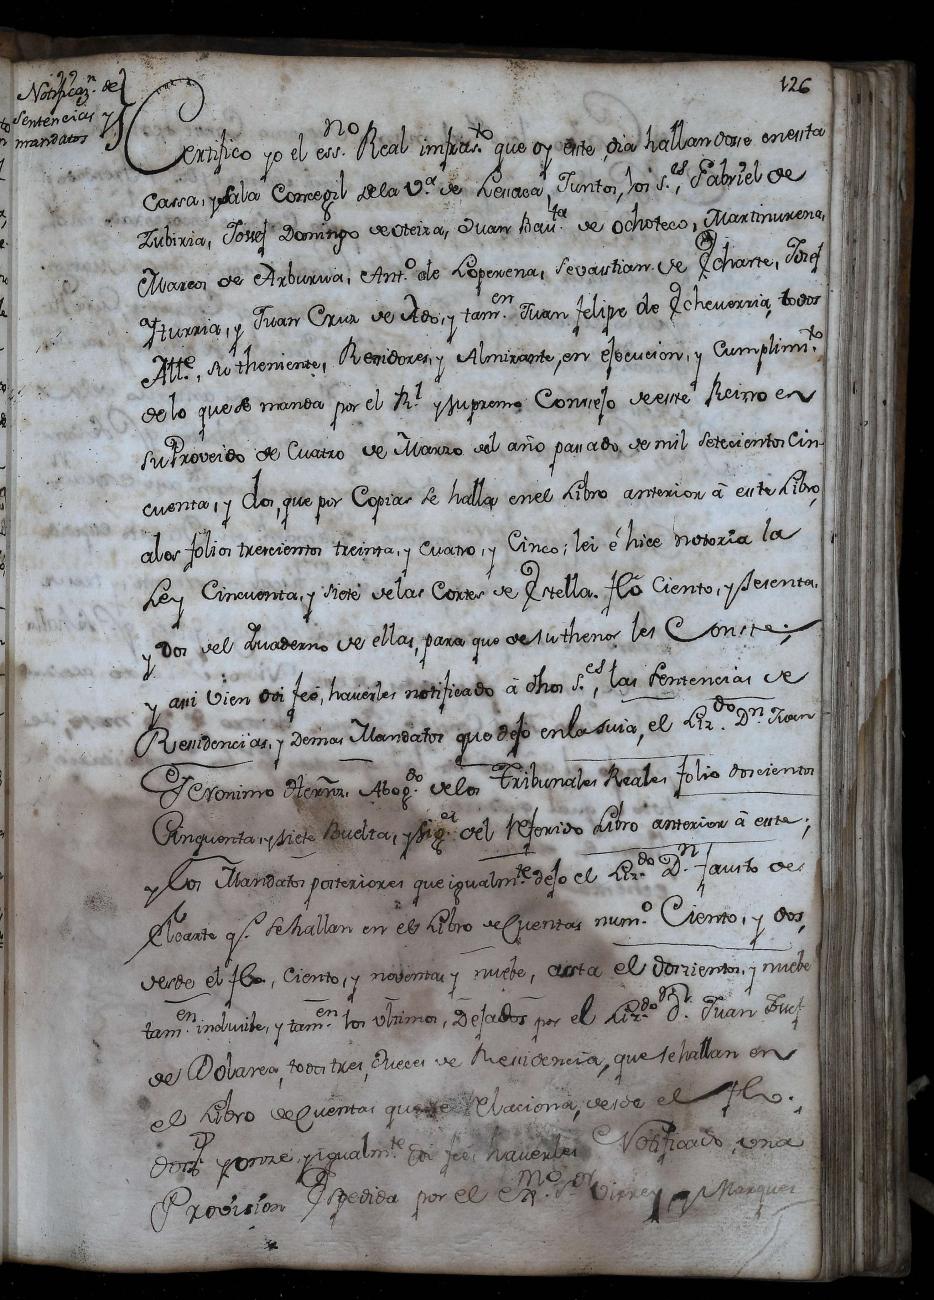 126
Notificaz.n de
sentencias y
mandatos
Certifico yo el ess.no Real infras.to que oy este dia hallandose en esta
Cassa, y Sala Concegil de la V.a de Lesaca, Juntos, los s.es Gabriel de
Zubiria, Josef Domingo de oteiza, Juan Bau.ta de ochoteco, Martinurena,
Marcos de Arburua, Ant.o de Loperena, Sevastian de Echarte, Josef
Yturria, y Juan Cruz de Ado, y tam.en Juan felipe de Echeverria, todos
Att.e, su theniente, Residores, y Almirante, en ejecucion, y Cumplimi.to
de lo que se manda por el R.l y supremo Consejo de este Reino en
su Proveido de Cuatro de Marzo del año passado de mil setecientos Cin-
cuenta, y dos, que por Copias se halla en el Libro anterior â este Libro,
a los folios trescientos treinta, y cuatro, y Cinco; lei é hice notoria la
Ley Cincuenta, y siete de las Cortes de Estella. flõ Ciento, y sesenta,
y dos del Quaderno de ellas, para que de su thenor les Conste;
y assi vien doi feé, haverles notificado â dhos s.es, las sentencias de
Residencias, y Demas Mandatos que dejo en la suia, el Liz.do D.n Juan
Geronimo Herñz. Abog.do de los Tribunales Reales folio doscientos
Cinquenta, y siete Buelta, y sig.et del referido Libro anterior â este;
y los Mandatos posteriores que igualm.te dejo el Liz.do D.n fausto de
Elcarte q.e se hallan en el Libro de Cuentas num.o Ciento, y dos,
desde el flo, ciento, y noventa y nuebe, asta el doszientos, y nuebe
tam.en inclusibe, y tam.en los vltimos, Dejados por el Liz.do D.n Juan Josef
de Dolarea, todos tres, Jueces de Residencia, que se hallan en
el Libro de Cuentas que se relaciona, desde el flo.
y onze, y igualm.te doi feé haverles Notificado, una
Provision Espedida por el Ex.mo s.or Virrey Marques